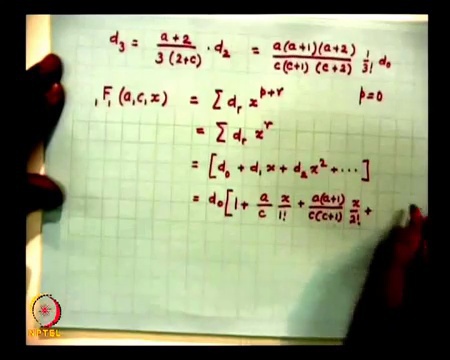 d₃ = (a+2)/(3(2+c)) · d₂ = (a(a+1)(a+2))/(c(c+1)(c+2)) 1/3! d₀
₁F₁(a,c,x) = Σ dᵣ x^(p+r) p=0
= Σ dᵣ x^r
= [d₀ + d₁x + d₂x² + ⋯]
= d₀[1 + a/c x/1! + (a(a+1))/(c(c+1)) x/2! +
NPTEL